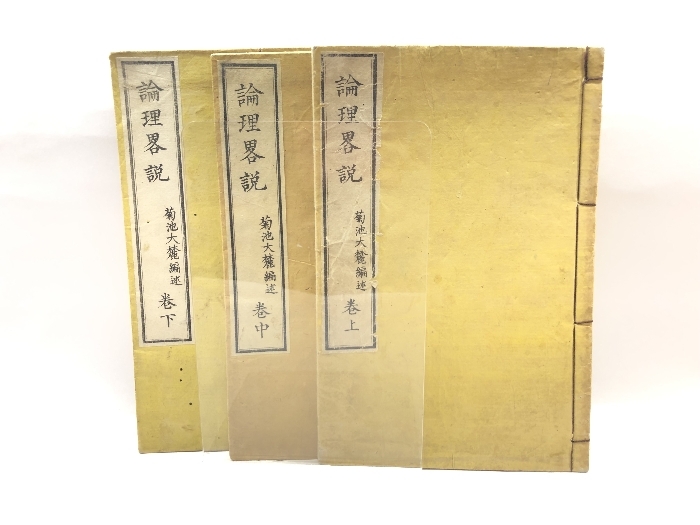 論理畧説
菊池大麓編述
卷上
論理畧説
菊池大麓編述
卷中
論理畧説
菊池大麓編述
卷下